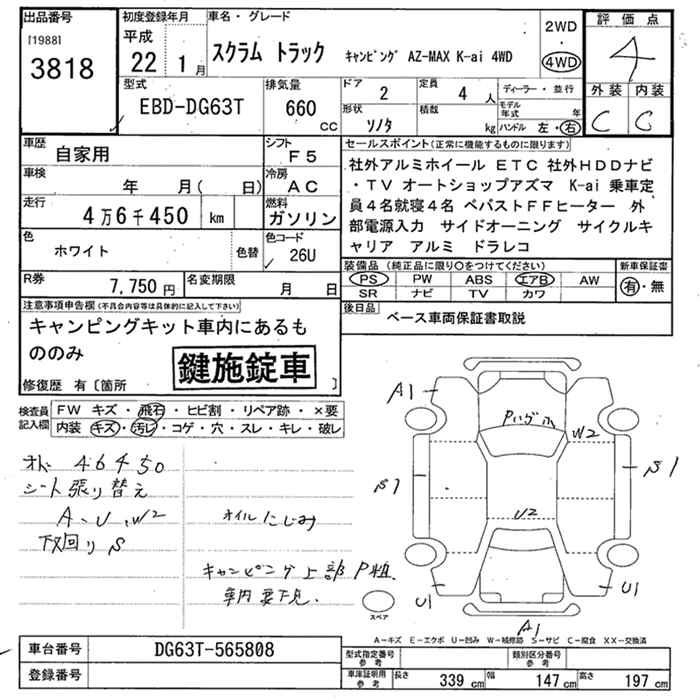 出品番号
[1988]
3818
初度登録年月
平成
22 1月
車名・グレード
スクラム トラック キャンピング AZ-MAX K-ai 4WD
2WD
・
4WD
評価点
4
外装 内装
C C
型式
EBD-DG63T
排気量
660
cc
ドア
2
定員
4 人
形状
ソノタ
積載
kg
ディーラー・並行
モデル年式 年
ハンドル 左・右
車歴
自家用
シフト
F5
車検
年 月( 日)
冷房
AC
走行
4万6千450 km
燃料
ガソリン
色
ホワイト
色替
色コード
26U
R券
7,750円
名変期限
月 日
セールスポイント(正常に機能するものに限ります)
社外アルミホイール ETC 社外HDDナビ
・TV オートショップアズマ K-ai 乗車定
員4名就寝4名 ベバストFFヒーター 外
部電源入力 サイドオーニング サイクルキ
ャリア アルミ ドラレコ
装備品(純正品に限り○をつけてください)
PS PW ABS エアB AW
SR ナビ TV カワ
新車保証書
有・無
後日品
ベース車両保証書取説
注意事項申告欄(不具合内容等は具体的に記入して下さい)
キャンピングキット車内にあるも
ののみ
鍵施錠車
修復歴 有〔箇所 〕
検査員記入欄
FW キズ・飛石・ヒビ割・リペア跡・×要
内装 キズ・汚レ・コゲ・穴・スレ・キレ・破レ
オド 46450
シート張り替え
A、U、W2
下回りS
オイルにじみ
キャンピング上部P粗
車内要下見.
A1
Pハゲ小
W2
S1
S1
U2
U1
U1
A1
スペア
A-キズ E-エクボ U-凹み W-補修跡 S-サビ C-腐食 XX-交換済
車台番号
DG63T-565808
登録番号
型式指定番号
参考
類別区分番号
参考
車庫証明用
参考
長さ 339 cm 幅 147 cm 高さ 197 cm